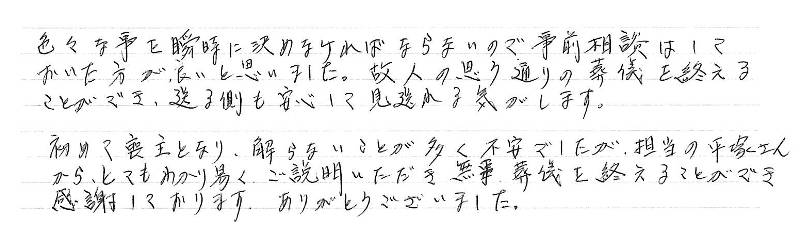 色々な事を瞬時に決めなければならないので事前相談はして
おいた方が良いと思いました。故人の思う通りの葬儀を終える
ことができ、送る側も安心して見送れる気がします。
初めて喪主となり、解らないことが多く不安でしたが、担当の平塚さん
から、とてもわかり易く、ご説明いただき無事葬儀を終えることができ
感謝しております。ありがとうございました。